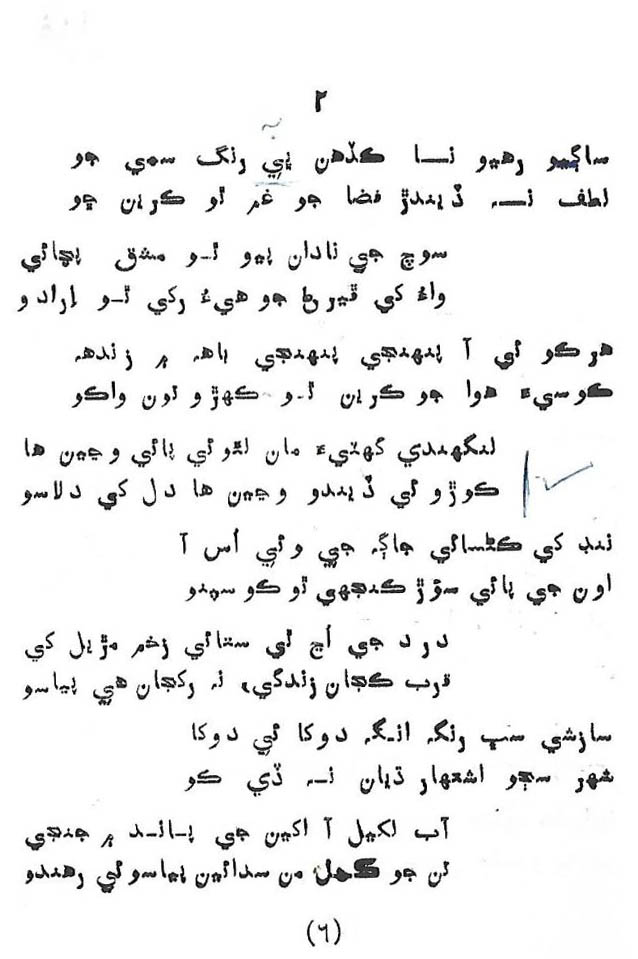 ٢
ساڳيو رهيو نـا ڪڏهن ڀي رنگ سمي جو
لطف نـه ڏيندڙ فضا جو غم ٿو ڪرين ڇو
سوچ جي نادان پيو ٿـو مشق پچائي
واءُ کي ڦيرڻ جو هيءُ رکي ٿـو اِرادو
هرڪو ئي آ پنهنجي پنهنجي باهه ۾ زندهه
ڪوسيءَ هوا جو ڪرين ٿـو ڪهڙو تون واڪو
لنگهندي گهٽيءَ مان لٿو ئي پائي وڃين ها
ڪوڙو ئي ڏيندو وڃين ها دل کي دلاسو
ننڊ کي ڪٽسائي جاڳه جي وئي اُس آ
اون جي پائي سؤڙ ڪنجهي ٿو ڪو سپنو
درد جي اُڃ ئي ستائي زخم مڙيل کي
قرب ڪجان زندگي، نه رکجان هي پياسو
سازشي سڀ رنگه انـگه دوکا ئي دوکا
شهر سڄو اشتهار ڌيان نـه ڏي ڪو
آب لکيل آ اکين جي پـانـد ۾ جنجي
تن جو من سدائين پياسو ئي رهندو
(٦)